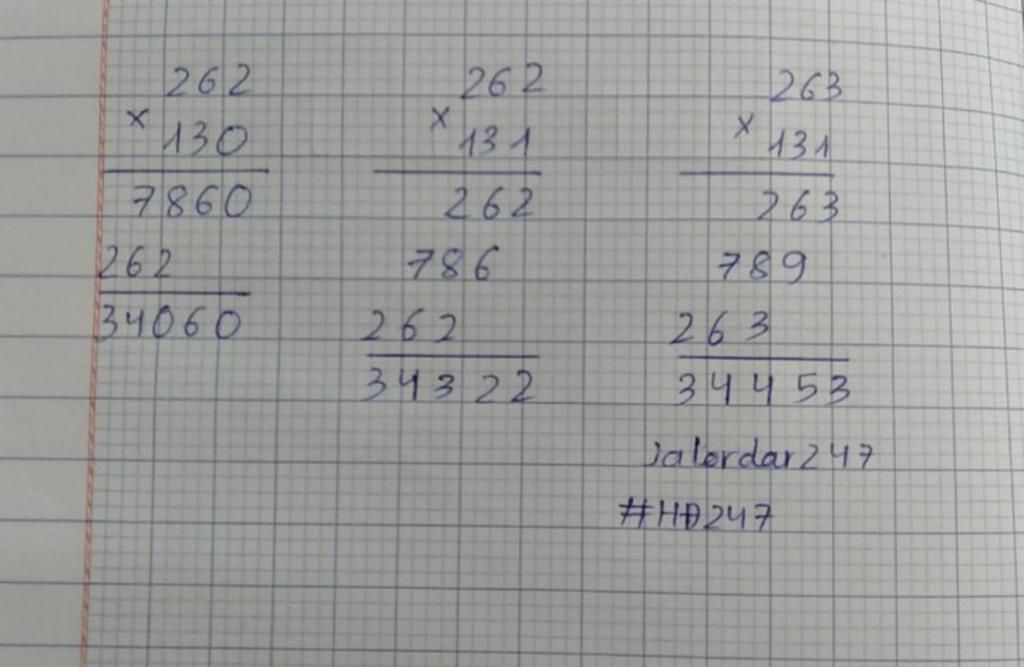 262
× 130
7860
262
34060
262
× 131
262
786
262
34322
263
× 131
263
789
263
34453
Jalordar247
#HD247